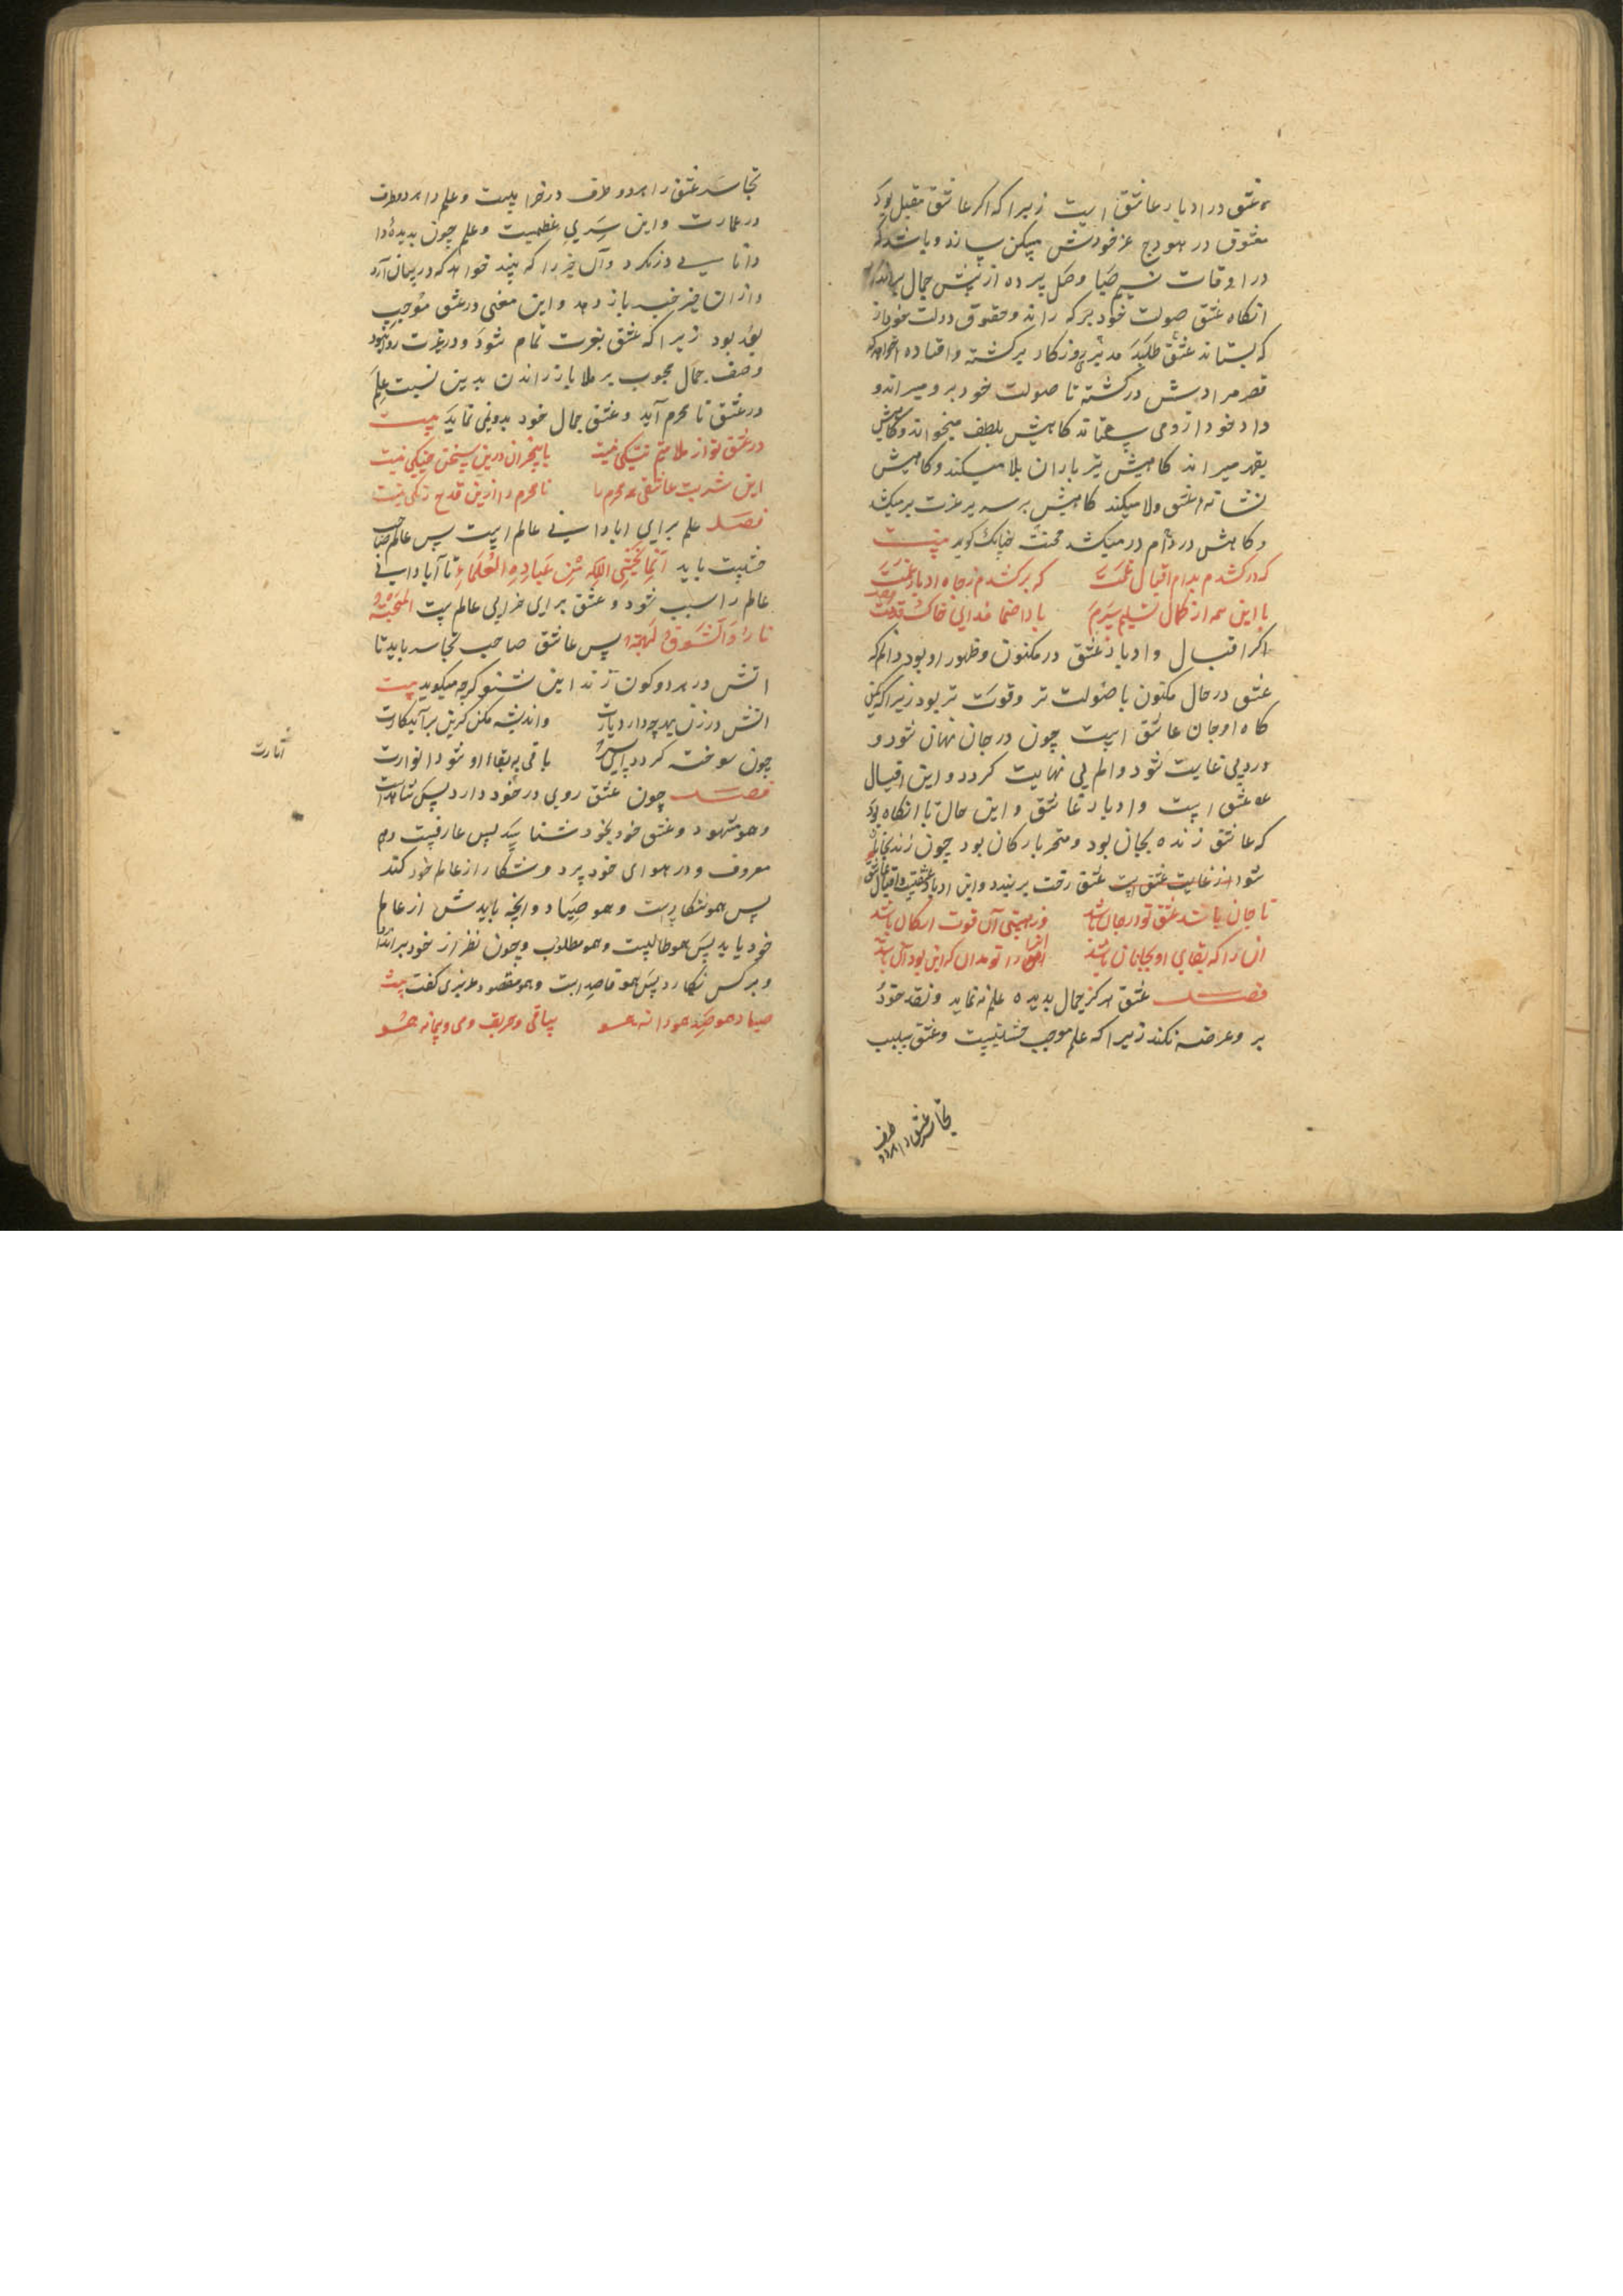 عشق در ادبار عاشق است زیرا که اکر عاشق مقبل بود
معشوق در هودج عز خودش مسکن سازد و باشد که
در اوقات نسیم صبا وصل پرده از پیش جمال براندازد
انکاه عشق صولت خود بر که راند و حقوق دولت خود از
که بستاند عشق طلبد مدبر روزکار برکشته و افتاده
قصر مرادش درکشته تا صولت خود برو میراند و
داد خود از وی میستاند کاهیش بلطف میخواند و کاهیش
بقهر میراند کاهیش تیر باران بلا میکند و کاهیش
نشانه عشق ولا میکند کاهیش بر سریر عزت برمیکشد
و کاهش در دام درمیکشد محنت چنانک کوید بیت
که درکشدم بدام اقبال غمت    که برکشدم ز جاه ادبار غمت
با این همه از کمال تسلیم سرم    بادا صنما فدای خاک قدمت
اکر اقبال و ادبار عشق در مکنون و ظهور او بود دانم که
عشق در حال مکنون با صولت تر و قوت تر بود زیرا که
کاه او جان عاشق است چون در جان نهان شود و
درد بی غایت شود و الم بی نهایت کردد و این اقبال
عشق است و ادبار عاشق و این حال تا انکاه بود
که عاشق زنده بجان بود و متحر بارکان بود چون زنده
شود از غایت عشق است عشق رخت بربندد و این ادبار عشقست و اقبال عاشق
تا جان باشد عشق تو در جان باشد    وز هستی آن قوت ارکان باشد
ان را که بقای او بجانان باشد    را تو مدان که این بود آن باشد
فصل عشق هرکز جمال بدیده علم نه نماید و نقد خود
برو عرضه نکند زیرا که علم موجب خشیتست و عشق سبب
تجاسر عشق را هر دو طرف
تجاسر عشق را هر دو طرف در خرابیست و علم را هر دو طرف
در عمارت و این سری عظمیست و علم چون بدیده
دانایی درنکرد و آن خبر را که بیند خواهد که در بیان آرد
و از ان خبر خبر باز دهد و این معنی در عشق موجب
بعد بود زیرا که عشق بغیرت تمام شود و در غیرت روا نبود
وصف جمال محبوب بر ملا باز راندن بدین نسبت علم
در عشق نا محرم آید و عشق جمال خود بدو نمی نماید بیت
در عشق تو از ملامتم ننکی نیست    با بیخبران درین سخن جنکی نیست
این شربت عاشقی همه محرم را    نامحرم را ازین قدح رنکی نیست
فصل علم برای ابادانی عالم است پس عالم صاحب
خشیت باید انما یخشی الله من عباده العلماء تا آبادانی
عالم را سبب شود و عشق برای خرابی عالم است المحبة
نار و الشوق لهبه پس عاشق صاحب تجاسر باید تا
اتش در هر دو کون زند این شنو که چه میکوید بیت
اتش در زن بهرچه دارد یارت    و اندیشه مکن کزین برآید کارت
چون سوخته کردد    باقی به بقاء او شود انوارت
فصل چون عشق روی در خود دارد پس شاهد است
و هم مشهود و عشق خود بخود شناسد پس عارفست و هم
معروف و در هوای خود پرد و شکار از عالم خود کند
پس هم شکارست و هم صیاد و انچه بایدش از عالم
خود یابد پس هم طالبست و هم مطلوب و چون نظر از خود بر
و بر کس نکمارد پس هم قاصد است و هم مقصود عزیزی کفت بیت
صیاد همو صید همو دانه همو    ساقی و حریف و می و پیمانه همو